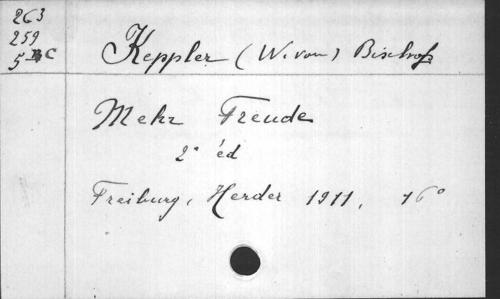 263
259
5 C
Keppler (W. von) Bischof
Mehr Freude
2° éd
Freiburg, Herder 1911, 16°